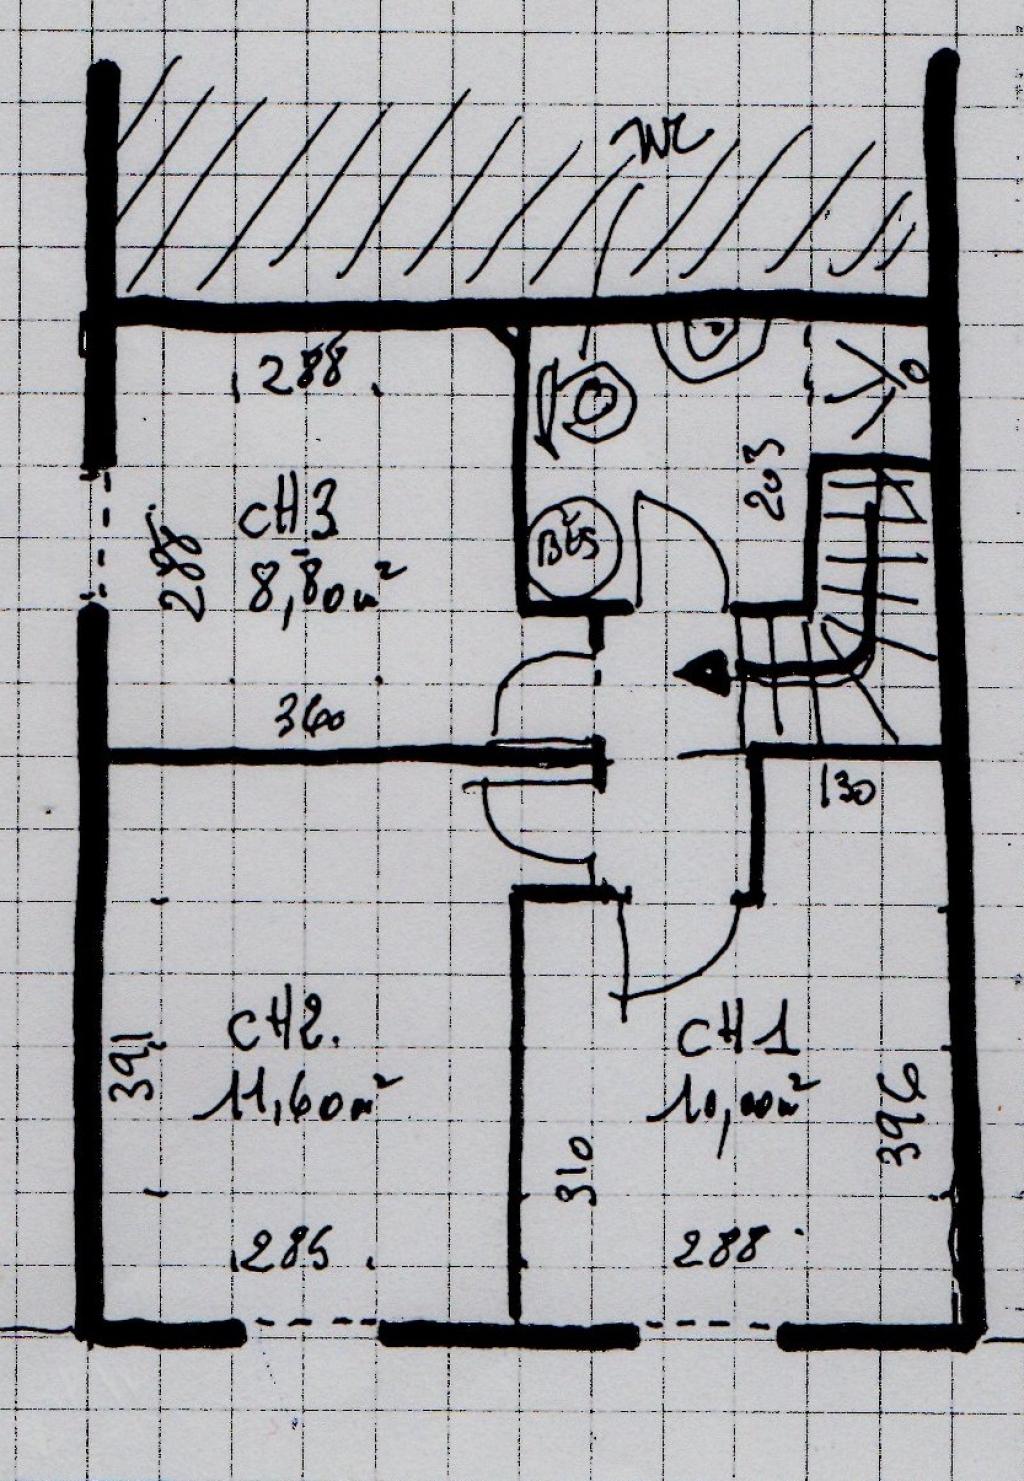 WC
288
203
CH3
8,80m²
288
BES
360
130
CH2.
11,60m²
391
CH1
10,00m²
396
310
285
288